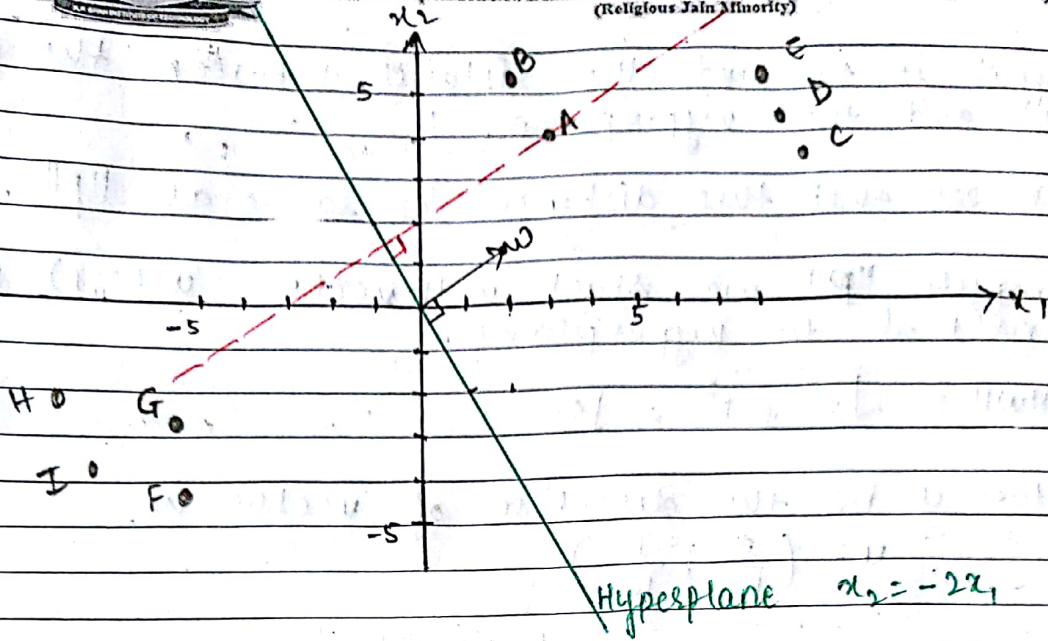 (Religious Jain Minority)
x₂
E
B
5
D
A
C
w
-5
5
x₁
H
G
I
F
-5
Hyperplane x₂ = -2x₁